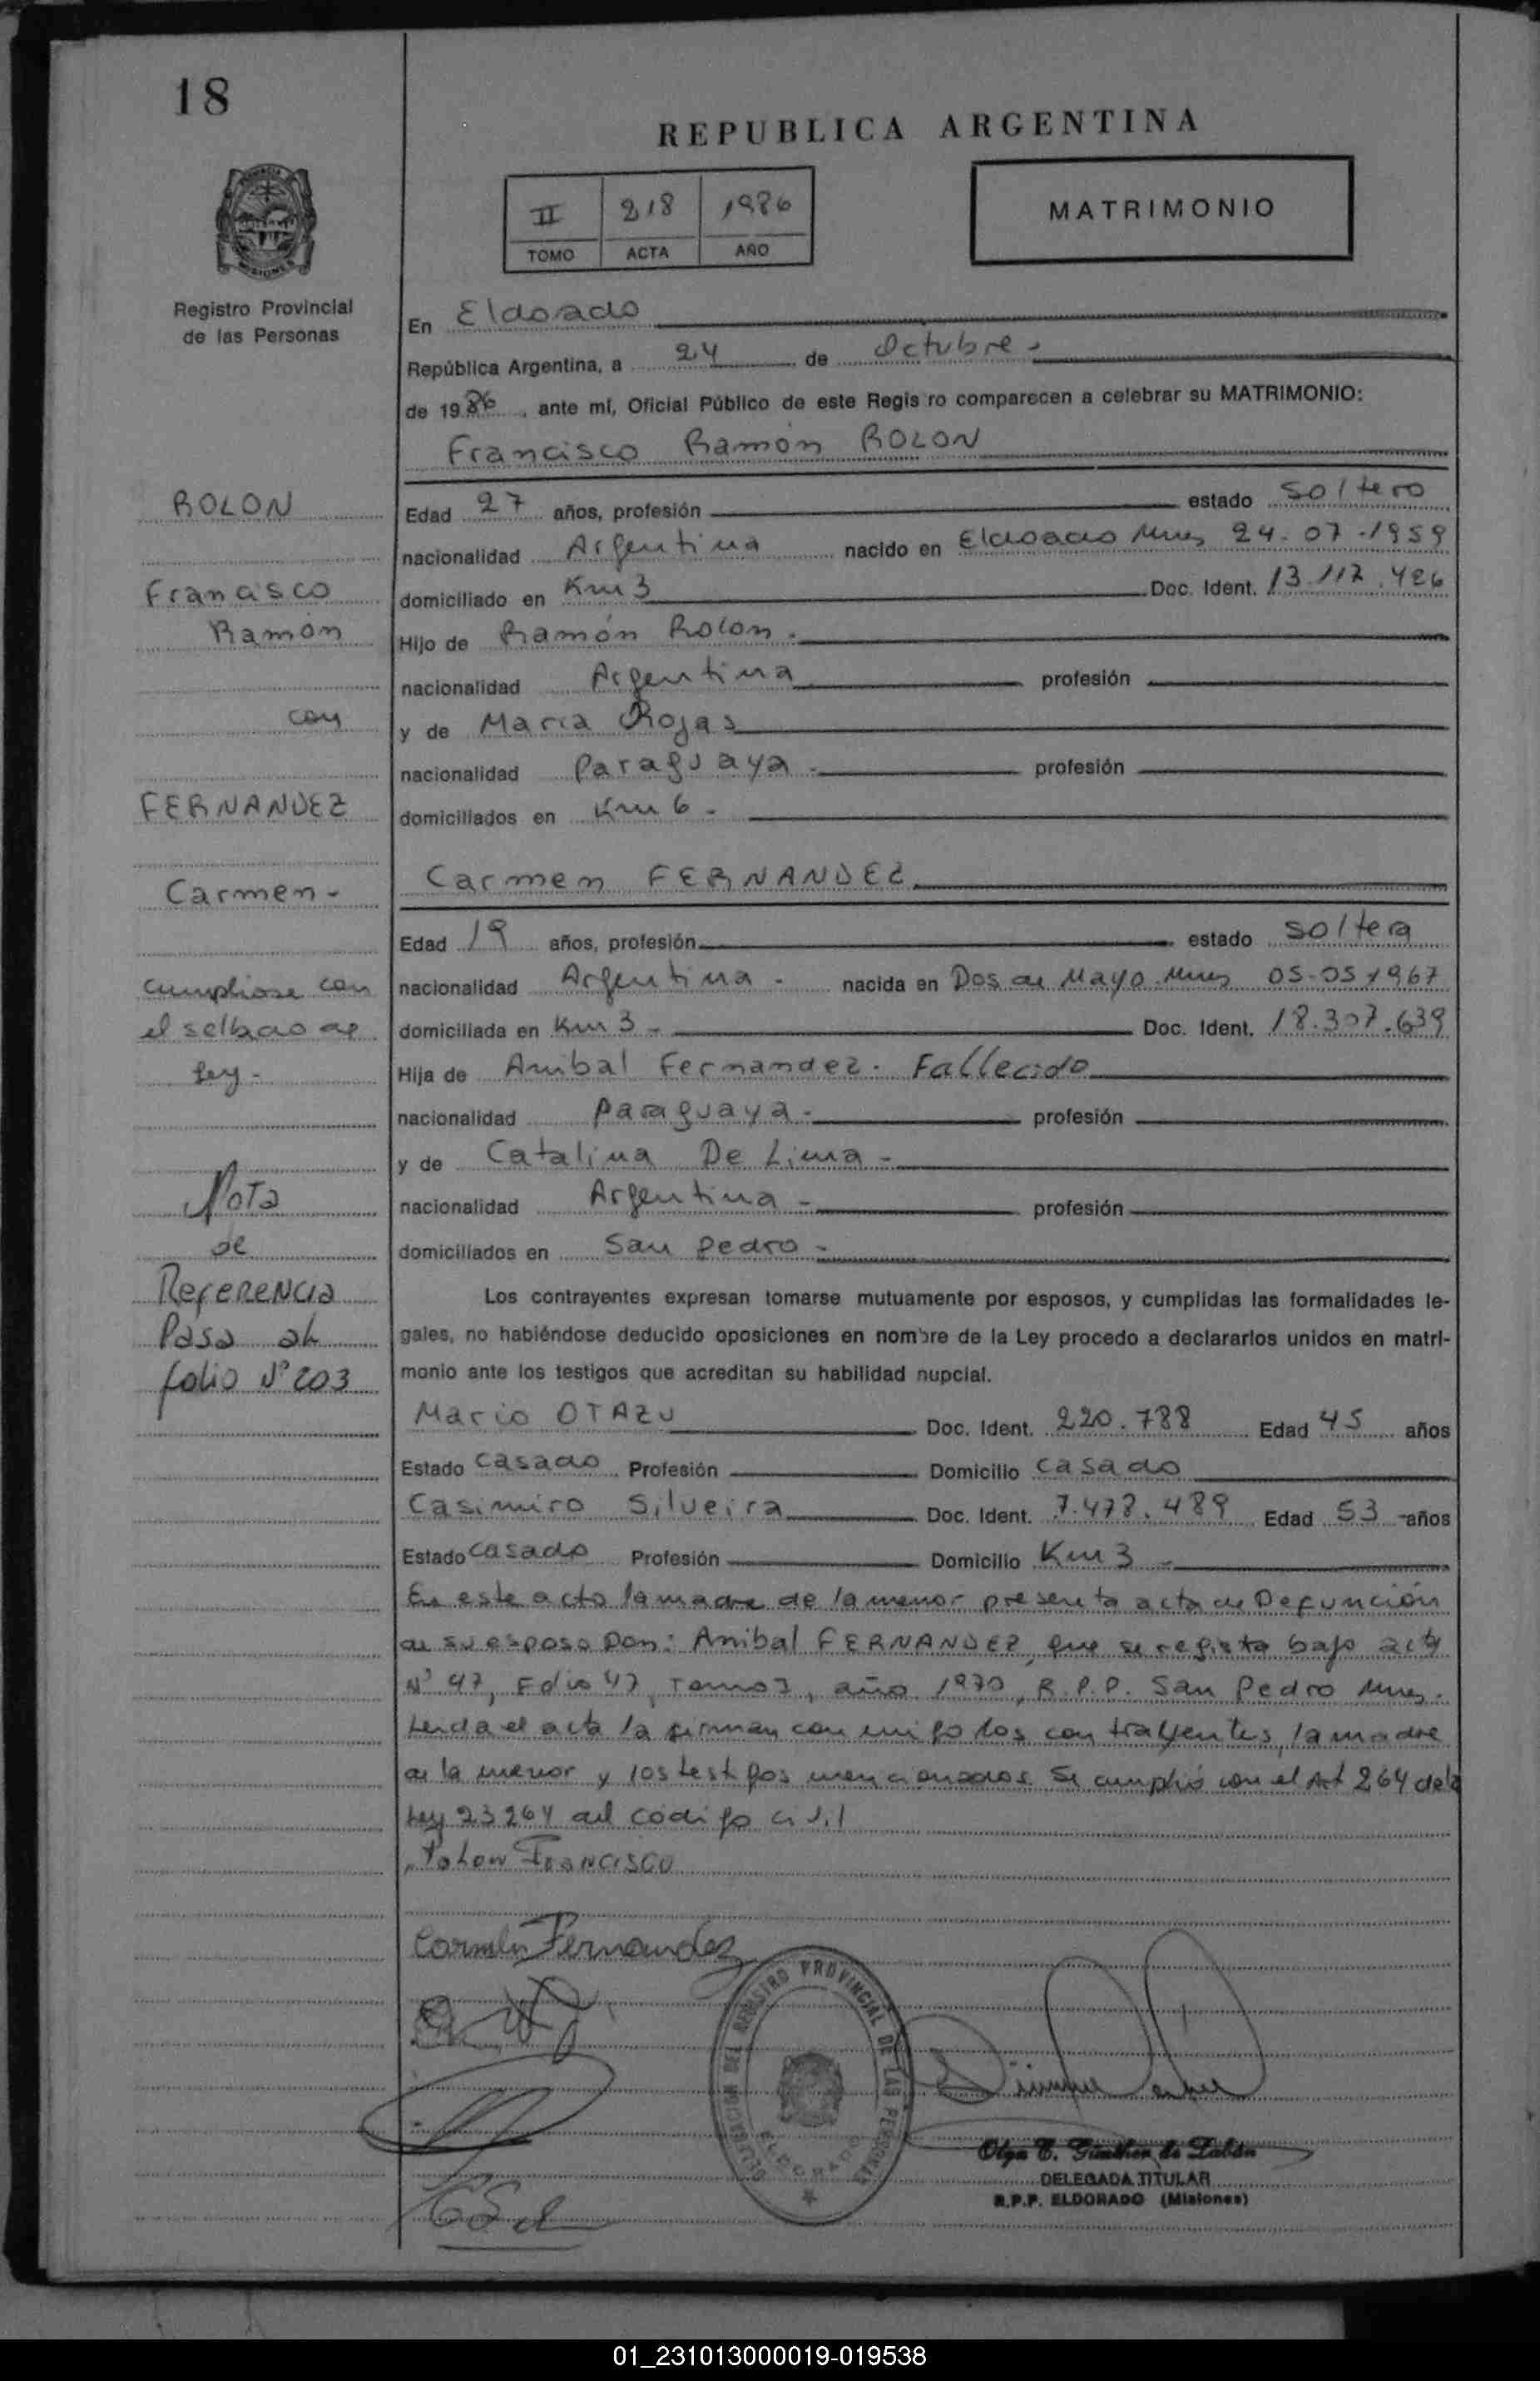 18
REPUBLICA ARGENTINA
II 218 1986
TOMO ACTA AÑO
MATRIMONIO
Registro Provincial
de las Personas
En Eldorado
República Argentina, a 24 de Octubre.
de 1986, ante mí, Oficial Público de este Regis ro comparecen a celebrar su MATRIMONIO:
Francisco Ramón ROLON
ROLON
Edad 27 años, profesión estado soltero
nacionalidad Argentina nacido en Eldorado Mnes 24.07.1959
Francisco
domiciliado en Km 3 Doc. Ident. 13.117.426
Ramón
Hijo de Ramón Rolon.
nacionalidad Argentina profesión
con
y de Maria Rojas
nacionalidad Paraguaya - profesión
FERNANDEZ
domiciliados en Km 6 -
Carmen FERNANDEZ
Carmen -
Edad 19 años, profesión estado soltera
cumpliose con
nacionalidad Argentina - nacida en Dos de Mayo Mnes 05-05-1967
el sellado de
domiciliada en Km 3 - Doc. Ident. 18.307.639
Ley -
Hija de Anibal Fernandez. Fallecido
nacionalidad paraguaya - profesión
y de Catalina De Lima -
Nota
nacionalidad Argentina - profesión
de
domiciliados en San Pedro -
Referencia
Los contrayentes expresan tomarse mutuamente por esposos, y cumplidas las formalidades le-
Pasa al
gales, no habiéndose deducido oposiciones en nombre de la Ley procedo a declararlos unidos en matri-
folio Nº 203
monio ante los testigos que acreditan su habilidad nupcial.
Mario OTAZU Doc. Ident. 220.788 Edad 45 años
Estado casado Profesión Domicilio casado
Casimiro Silveira Doc. Ident. 7.478.489 Edad 53 años
Estado casado Profesión Domicilio Km 3 -
En este acto la madre de la menor presenta acta de Defunción
de su esposo Don: Anibal FERNANDEZ, que se registra bajo acta
Nº 47, Folio 47, Tomo I, año 1970, R.P.P. San Pedro Mnes.
Leida el acta la firman conmigo los contrayentes, la madre
de la menor y los testigos mencionados. Se cumplió con el Art 264 de la
Ley 23264 del código civil
Rolon Francisco
Carmen Fernandez
DELEGACION DEL REGISTRO PROVINCIAL DE LAS PERSONAS
ELDORADO
DELEGADA TITULAR
R.P.P. ELDORADO (Misiones)
01_231013000019-019538